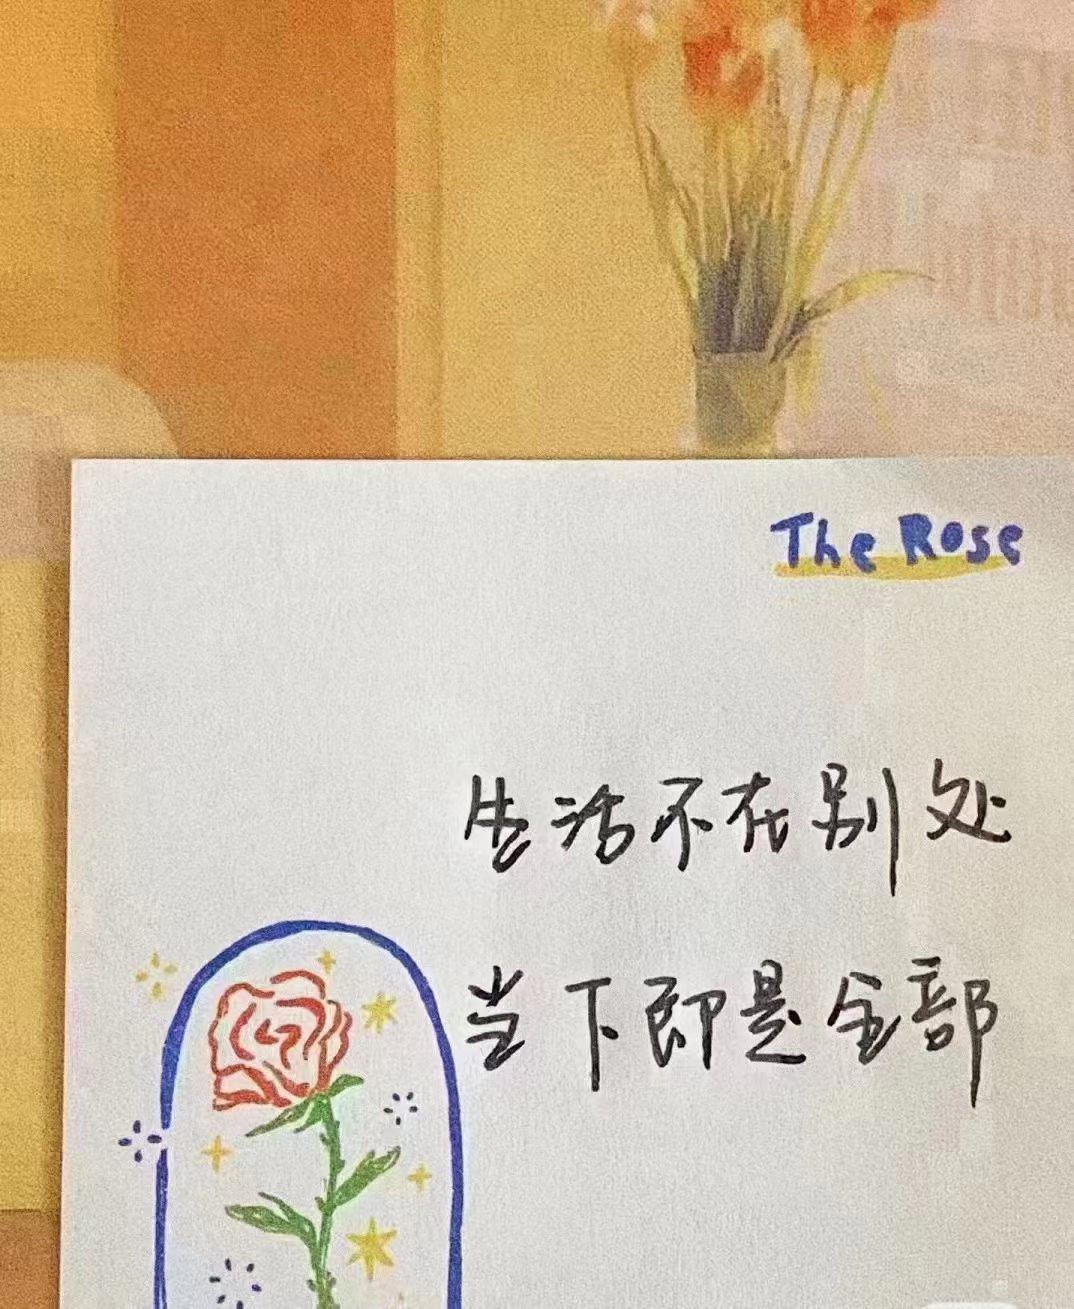 The Rose
生活不在别处
当下即是全部